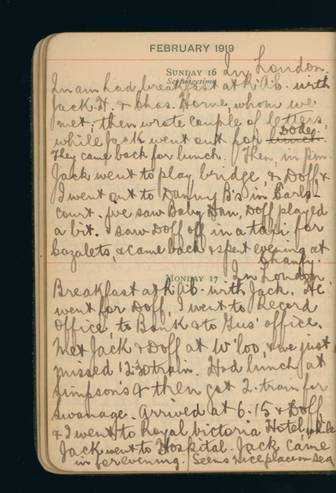 FEBRUARY 1919
SUNDAY 16 In London.
Septuagesima
In am had breakfast at R.A.C. with
Jack H. & Chas. Horne, whom we
met; then wrote couple of letters,
while Jack went out for lunch Dodo.
They came back for lunch. Then, in p.m.
Jack went to play bridge, & Doff &
I went out to Danny B's in Earls-
court. We saw Baby Dan, Doff played
a bit. I saw Doff off in a taxi for
& came back & spent evening at
MONDAY 17 In London.
Breakfast at R.A.C. with Jack. He
went for Doff, I went to Record
Office, to Bank & to Gus' office.
Met Jack & Doff at W'loo, & we just
missed 12.30 train. Had lunch at
Simpson's & then got 2. train for
Swanage. Arrived at 6.15 & Doff
& I went to Royal Victoria Hotel while
Jack went to Hospital. Jack came
in for evening. Seems nice place on sea